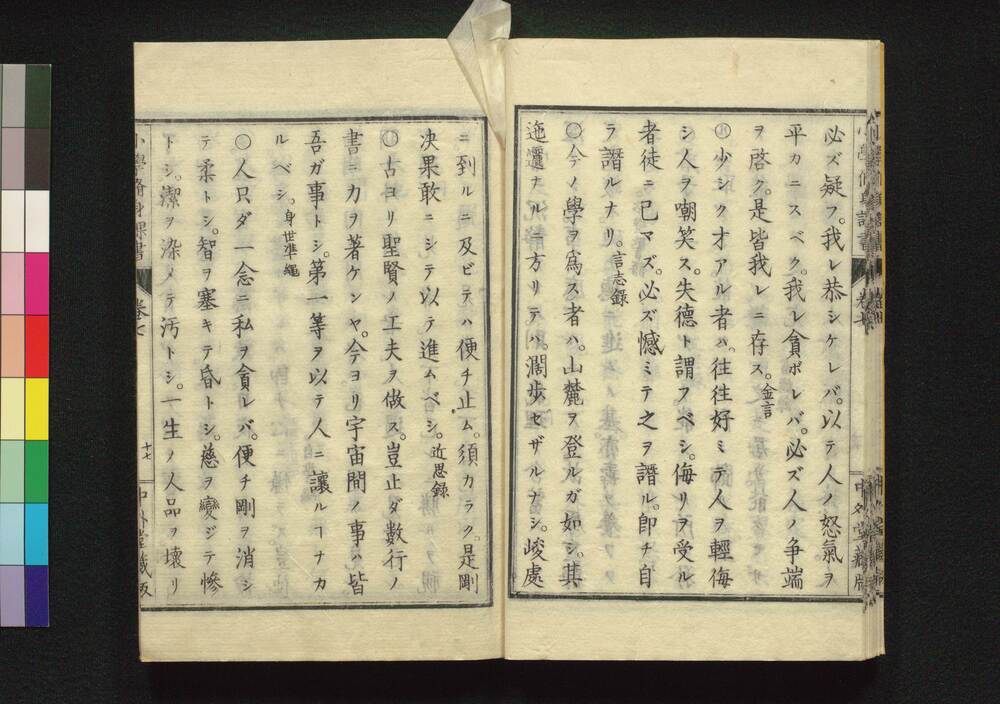 必ズ疑フ。我レ恭シケレバ。以テ人ノ怒氣ヲ
平カニスベク。我レ貪ボレバ。必ズ人ノ争端
ヲ啓ク。是皆我レニ存ス。金言
〇少シク才アル者ハ。往往好ミテ人ヲ輕侮
シ人ヲ嘲笑ス。失德ト謂フベシ。侮リヲ受ル
者徒ニ已マズ。必ズ憾ミテ之ヲ譖ル。卽チ自
ラ譖ルナリ。言志錄
〇今ノ學ヲ爲ス者ハ。山麓ヲ登ルガ如シ。其
迤邐ナルニ方リテハ。濶歩セザルナシ。峻處
ニ到ルニ及ビテハ便チ止ム。須カラク。是剛
决果敢ニシテ以テ進ムベシ。近思錄
〇古ヨリ聖賢ノ工夫ヲ做ス。豈止ダ數行ノ
書ニ力ヲ著ケンヤ。今ヨリ宇宙間ノ事ハ皆
吾ガ事トシ。第一等ヲ以テ人ニ讓ルヿナカ
ルベシ。身世準繩
〇人只ダ一念ニ私ヲ貪レバ。便チ剛ヲ消シ
テ柔トシ。智ヲ塞キテ昏トシ。慈ヲ變ジテ慘
トシ。潔ヲ染メテ汚トシ。一生ノ人品ヲ壞リ
小學脩身課書
卷七
十七
中外堂藏版